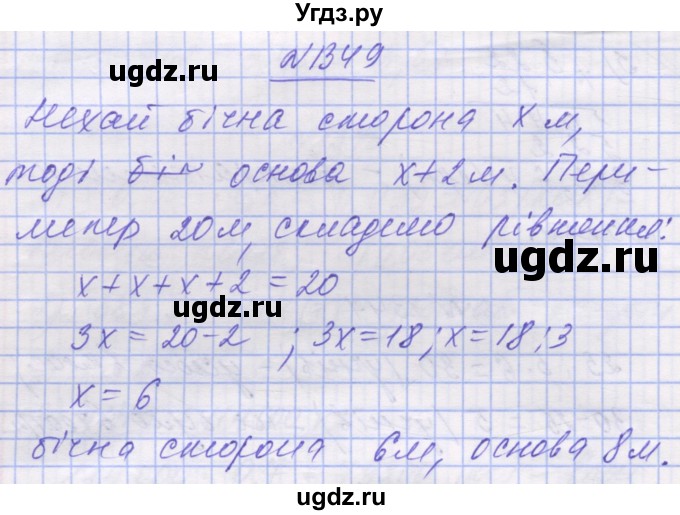 Угдз.ру
№1349
ugdz.ru ugdz.ru
Нехай бічна сторона x м,
тоді біч основа x+2 м. Пери-
метр 20м, складемо рівняння:
ugdz.ru
x+x+x+2=20
ugdz.ru
3x=20-2 ; 3x=18; x=18:3
x=6
бічна сторона 6м, основа 8м.
ugdz.ru